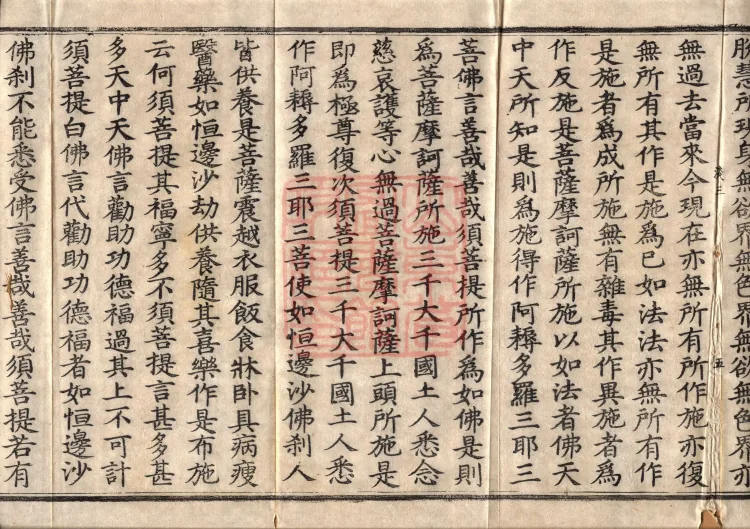 脫慧所現身無欲界無色界無欲無色界亦
無過去當來今現在亦無所有所作施亦復
無所有其作是施為已如法法亦無所有作
是施者為成所施無有雜毒其作異施者為
作反施是菩薩摩訶薩所施以如法者佛天
中天所知是則為施得作阿耨多羅三耶三
菩佛言善哉善哉須菩提所作為如佛是則
為菩薩摩訶薩所施三千大千國土人悉念
慈哀護等心無過菩薩摩訶薩上頭所施是
即為極尊復次須菩提三千大千國土人悉
作阿耨多羅三耶三菩使如恒邊沙佛剎人
皆供養是菩薩震越衣服飯食牀臥具病瘦
醫藥如恒邊沙劫供養隨其喜樂作是布施
云何須菩提其福寧多不須菩提言甚多甚
多天中天佛言勸助功德福過其上不可計
須菩提白佛言代勸助功德福者如恒邊沙
佛剎不能悉受佛言善哉善哉須菩提若有
五